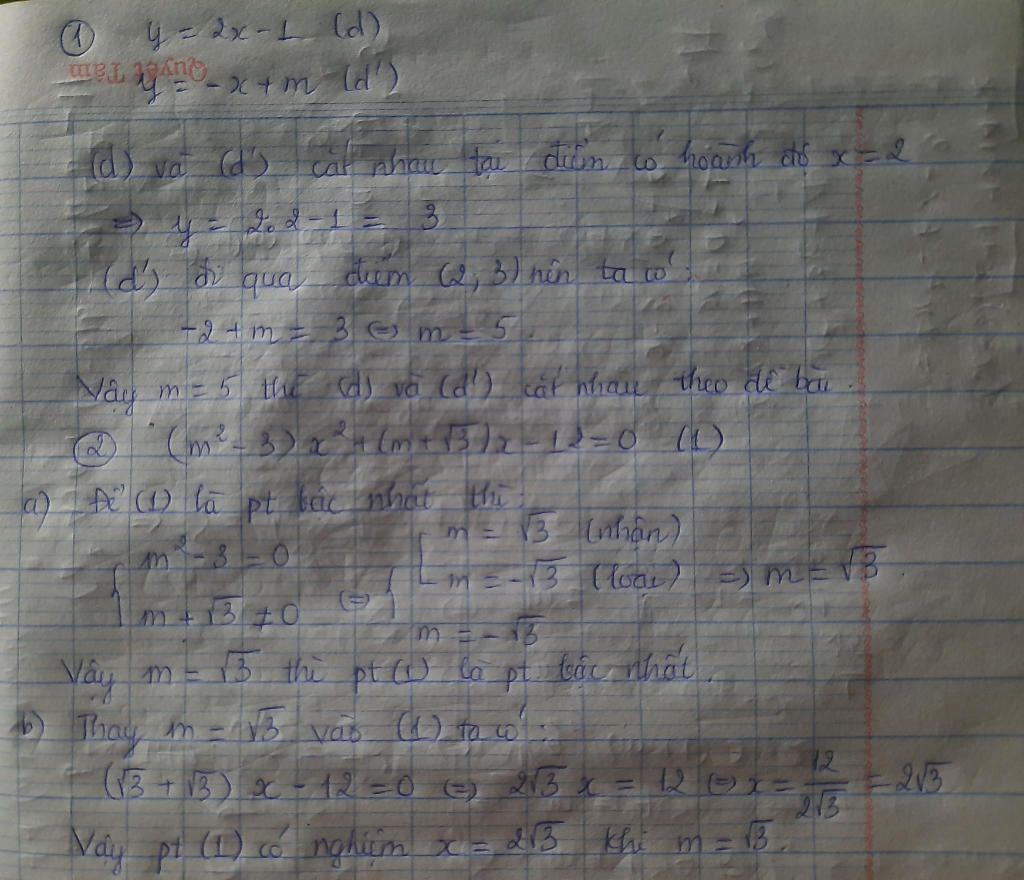 ① y = 2x - 1 (d)
Quyết Tâm
y = -x + m (d')
(d) và (d') cắt nhau tại điểm có hoành độ x = 2
=> y = 2.2 - 1 = 3
(d') đi qua điểm (2, 3) nên ta có:
-2 + m = 3 <=> m = 5.
Vậy m = 5 thì (d) và (d') cắt nhau theo đề bài.
② (m² - 3)x² + (m + √3)x - 12 = 0 (1)
a) Để (1) là pt bậc nhất thì:
{ m² - 3 = 0 ; m + √3 ≠ 0 <=> { [ m = √3 (nhận) ; m = -√3 (loại) ; m = -√3 => m = √3.
Vậy m = √3 thì pt (1) là pt bậc nhất.
b) Thay m = √3 vào (1) ta có:
(√3 + √3) x - 12 = 0 <=> 2√3 x = 12 <=> x = 12/2√3 = 2√3
Vậy pt (1) có nghiệm x = 2√3 khi m = √3.